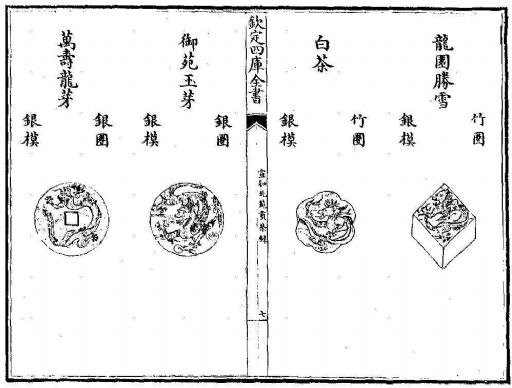 龍園勝雪
竹圈
銀模
白茶
竹圈
銀模
欽定四庫全書
宣和北苑貢茶錄
七
御苑玉芽
銀圈
銀模
萬壽龍芽
銀圈
銀模